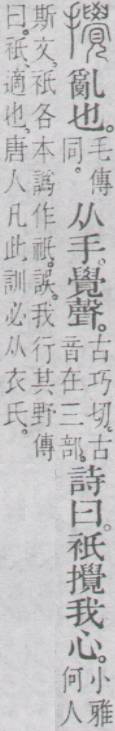 攪亂也。毛傳同。从手。覺聲。古巧切。古音在三部。詩曰。衹攪我心。小雅何人
斯文。衹各本譌作祇。誤。我行其野傳
曰。衹、適也。唐人凡此訓必从衣氏。